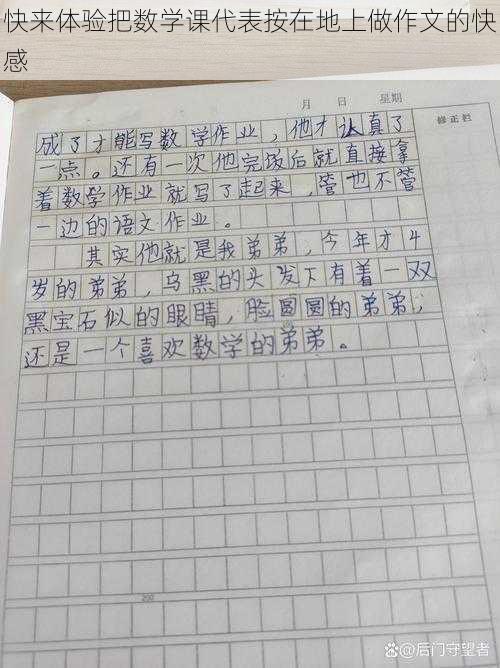 快来体验把数学课代表按在地上做作文的快
感
月 日 星期
修正栏
成了才能写数学作业，他才认真了
一点。还有一次他完饭后就直接拿
着数学作业就写了起来，管也不管
一边的语文作业。
其实他就是我弟弟，今年才4
岁的弟弟，乌黑的头发下有着一双
黑宝石似的眼睛，脸圆圆的弟弟，
还是一个喜欢数学的弟弟。
200
@后门守望者